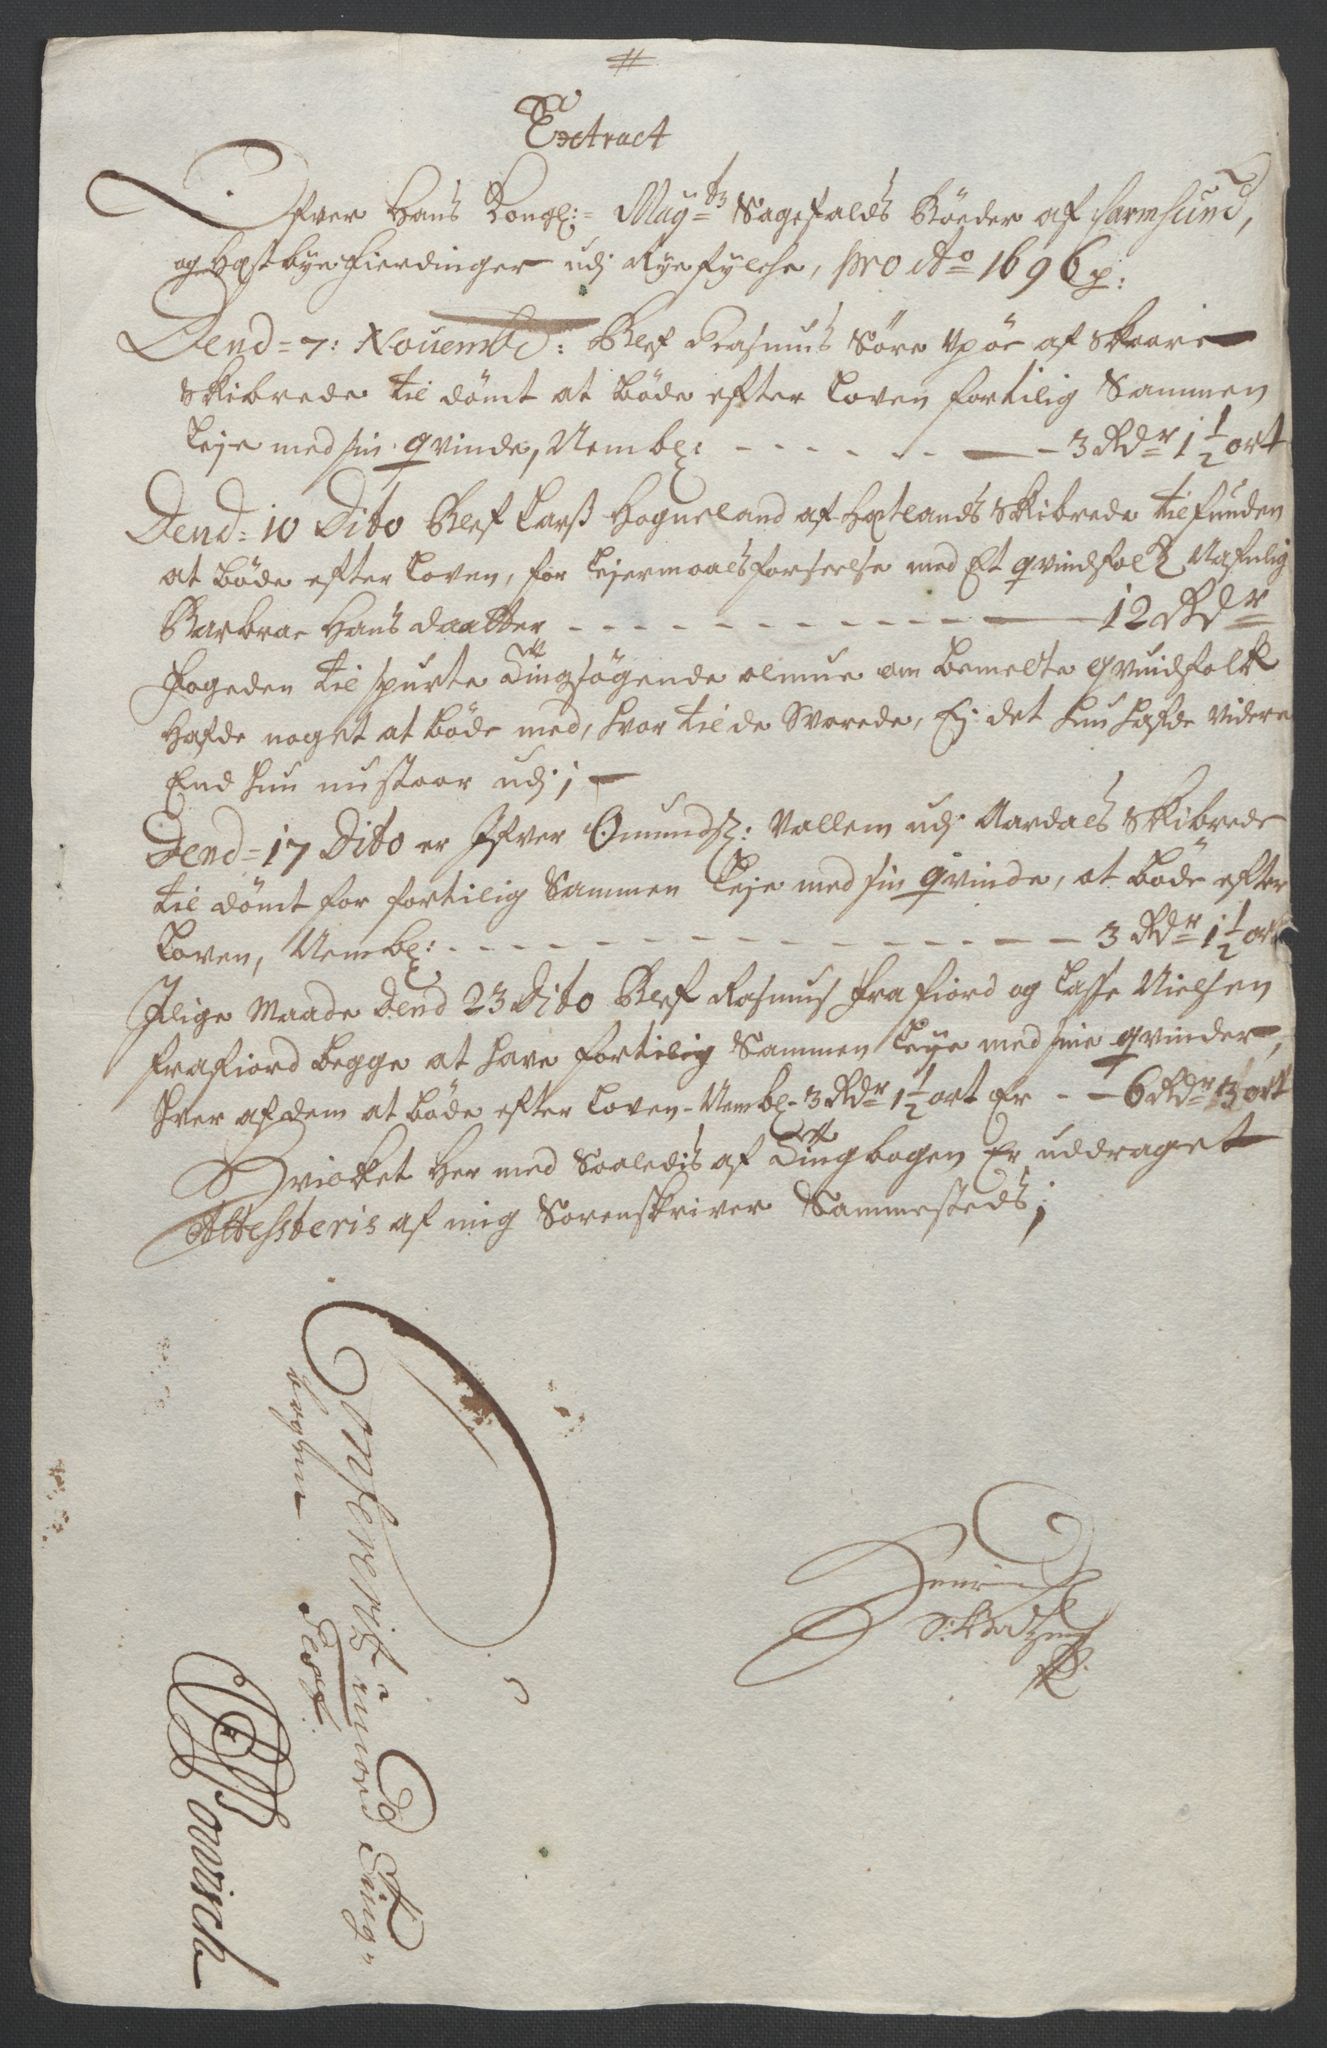 #
Extract
Ofver Hans Kongl:= May:ts Sagefalds Bøeder af Karmsund,
og Hestbye Fierdinger udj Ryefylche, pro Ao 1696 p:
Dend = 7: Nouembr: Blef Rasmus Søre Vpøe af Skaare
Skibrede til dømt at bøde efter Loven fortilig Sammen
Leje med sin qvinde, Nembl: - - - - - - 3 Rdr 1½ ort
Dend: 10 Dito Blef Larß Hogueland af Hetlands Skibrede tilfunden
at bøde efter Loven, for Lejermaals forseelse med Et qvindfolk Nafnlig
Barbrae Hans daatter - - - - - - - - 12 Rdr
Fogeden til spurte Tingsøgende almue om bemelte qvindfolk
hafde noget at bøde med, hvor til de Svarede, Ej det hun hafde videre
End hun nu staar udj; -
Dend = 17 Dito er Ifver Omundß: Vallem udj Aardals Skibrede
til dømt for fortilig Sammen Leje med sin qvinde, at bøde efter
Loven, Nembl: - - - - - - - - - - 3 Rdr 1½ ort
Jlige Maade Dend 23 Dito Blef Rasmus Frafiord og Lasse Nielsen
Frafiord begge at have fortilig Sammen Leye med sine qvinder,
hver af dem at bøde efter Loven - Nembl - 3 Rdr 1½ ort Er - - 6 Rdr 3 ort
Hvicket Her med Saaledis af Tingbogen Er uddraget
Attesteris af mig Sorenskriver Sammesteds;
Henrich
Confererit imod Ting-
bogen
Test.